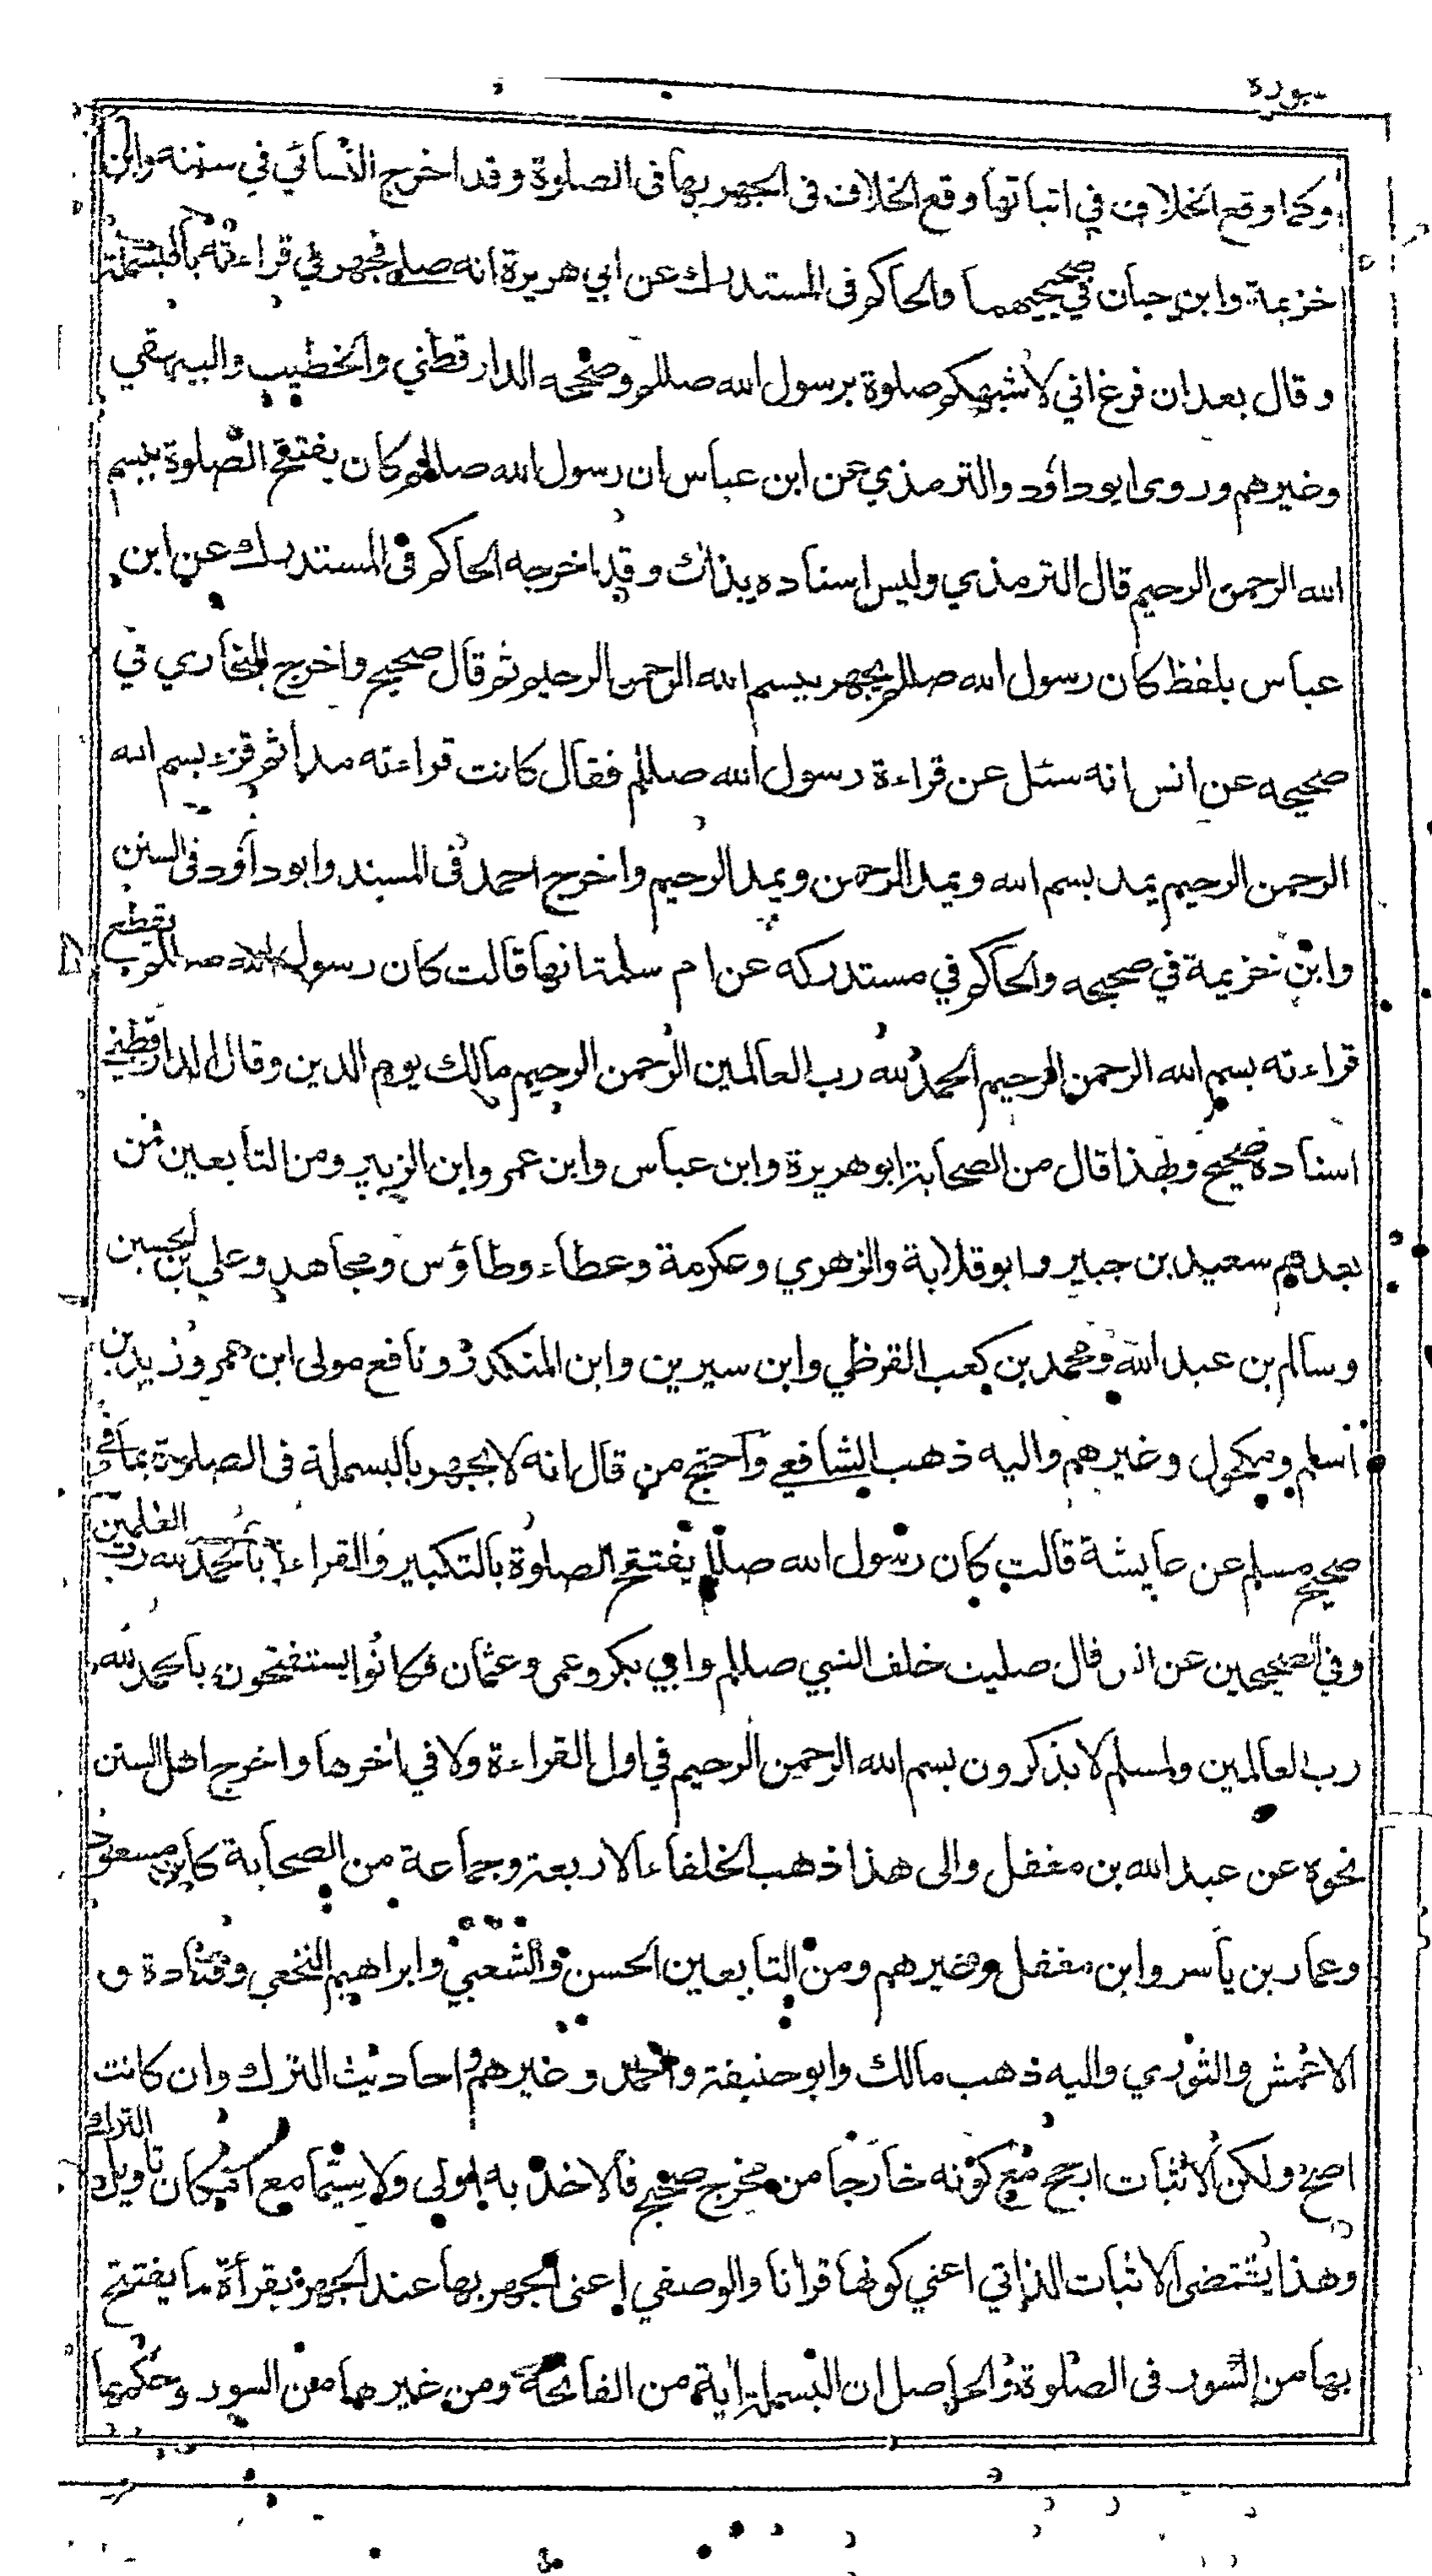 سورة
وكما وقع الخلاف في اثباتها وقع الخلاف فى الجهر بها فى الصلوة وقد اخرج النسائي في سننه وابن
خزيمة وابن حبان في صحيحيهما والحاكم فى المستدرك عن ابي هريرة انه صلى فجهر في قراءته بالبسملة
وقال بعد ان فرغ اني لاشبهكم صلوة برسول الله صللم وصححه الدارقطني والخطيب والبيهقي
وغيرهم وروى ابوداؤد والترمذي عن ابن عباس ان رسول الله صللم كان يفتتح الصلوة ببسم
الله الرحمن الرحيم قال الترمذي وليس اسناده بذاك وقد اخرجه الحاكم فى المستدرك عن ابن
عباس بلفظ كان رسول الله صللم يجهر ببسم الله الرحمن الرحيم ثم قال صحيح واخرج البخاري في
صحيحه عن انس انه سئل عن قراءة رسول الله صللم فقال كانت قراءته مدا ثم قرء بسم الله
الرحمن الرحيم يمد بسم الله ويمد الرحمن ويمد الرحيم واخرج احمد فى المسند وابوداؤد فى السنن
وابن خزيمة في صحيحه والحاكم في مستدركه عن ام سلمة انها قالت كان رسول الله صللم يقطع
قراءته بسم الله الرحمن الرحيم الحمد لله رب العالمين الرحمن الرحيم مالك يوم الدين وقال الدارقطني
اسناده صحيح وبهذا قال من الصحابة ابو هريرة وابن عباس وابن عمر وابن الزبير ومن التابعين فمن
بعدهم سعيد بن جبير وابو قلابة والزهري وعكرمة وعطاء وطاؤس ومجاهد وعلي بن الحسين
وسالم بن عبد الله ومحمد بن كعب القرظي وابن سيرين وابن المنكدر ونافع مولى ابن عمر وزيد بن
اسلم ومكحول وغيرهم واليه ذهب الشافعي واحتج من قال انه لا يجهر بالبسملة فى الصلوة بما في
صحيح مسلم عن عايشة قالت كان رسول الله صللم يفتتح الصلوة بالتكبير والقراءة بالحمد لله رب العلمين
وفي الصحيحين عن انس قال صليت خلف النبي صللم وابي بكر وعمر وعثمان فكانوا يستفتحون بالحمد لله
رب العالمين ولمسلم لا يذكرون بسم الله الرحمن الرحيم في اول القراءة ولا في اخرها واخرج اهل السنن
نحوه عن عبد الله بن مغفل والى هذا ذهب الخلفاء الاربعة وجماعة من الصحابة كابن مسعود
وعمار بن ياسر وابن مغفل وغيرهم ومن التابعين الحسن والشعبي وابراهيم النخعي وقتادة و
الاعمش والثوري واليه ذهب مالك وابو حنيفة واحمد وغيرهم واحاديث الترك وان كانت
اصح ولكن الاثبات ارجح مع كونه خارجا من مخرج صحيح فالاخذ به اولى ولا سيما مع امكان تاويل الترك
وهذا يقتضى الاثبات الذاتي اعني كونها قرانا والوصفي اعنى الجهر بها عند الجهر بقرأة ما يفتتح
بها من السور فى الصلوة والحاصل ان البسملة اية من الفاتحة ومن غيرها من السور وحكمها